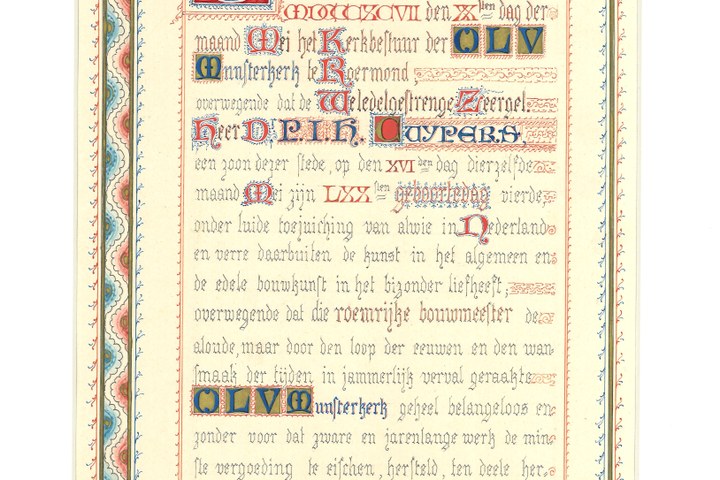 MDCCXCVII den XXsten dag der
maand Mei het Kerkbestuur der O L V
Munsterkerk te Roermond
overwegende dat de Weledelgestrenge Zeergel.
Heer D.r P.I.H. CUYPERS,
een zoon dezer stede, op den XVIden dag dierzelfde
maand Mei zijn LXXsten geboortedag vierde,
onder luide toejuiching van alwie in Nederland
en verre daarbuiten de kunst in het algemeen en
de edele bouwkunst in het bizonder liefheeft;
overwegende dat die roemrijke bouwmeester de
aloude, maar door den loop der eeuwen en den wan-
smaak der tijden in jammerlijk verval geraakte
O L V Munsterkerk geheel belangeloos en
zonder voor dat zware en jarenlange werk de min-
ste vergoeding te eischen, hersteld, ten deele her-